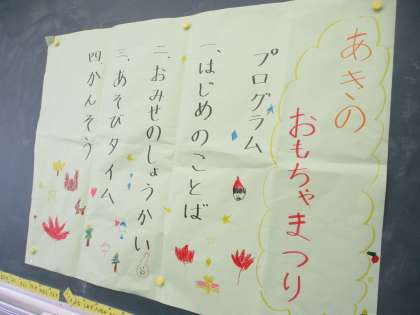 あきの
おもちゃまつり
プログラム
一、はじめのことば
二、おみせのしょうかい
三、あそびタイム
四、かんそう